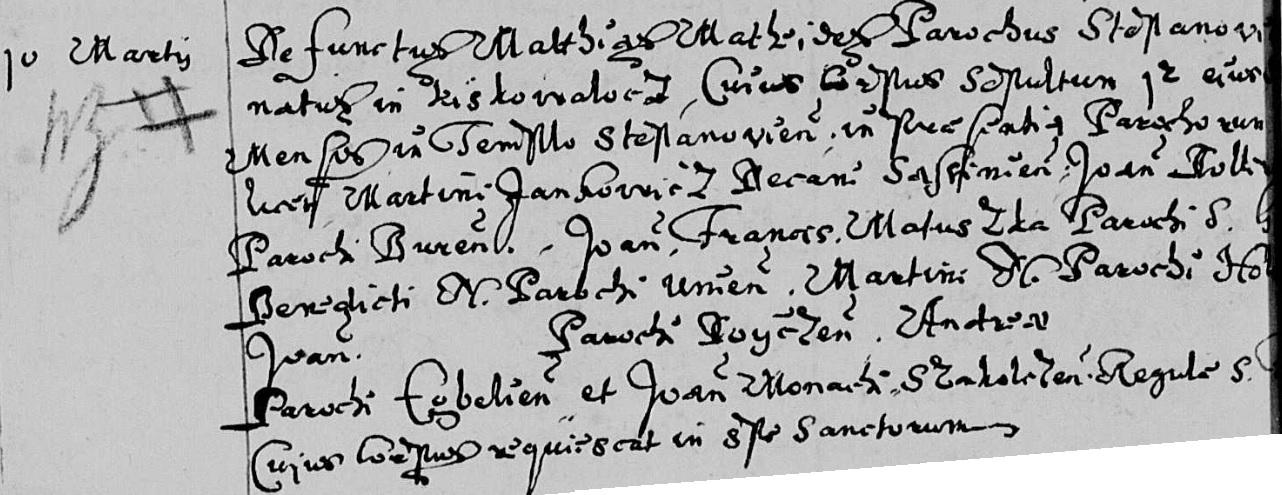 10 Martij Defunctus Matthias Mathides Parochus Stepanovi
natus in Kiskovalocz, Cuius Corpus Sepultum 12 eius
Mensis in Templo Stepanovien. in præsentia Parochorum
Martini Jankovicz Decani Sassinien. Joan
Parochi Buren. Joan. Francis. Matuszka Parochi S.
Benedicti N. Parochi Unien. Martini N. Parochi Ho
Joan. Parochi . Andreæ
Parochi Egbelien et Joan Monachi Szakolczen. Regulæ S.
Cujus Corpus requiescat in spe Sanctorum